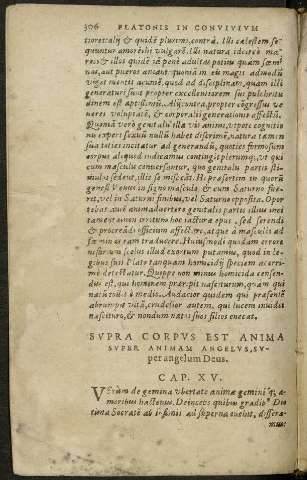 306 PLATONIS IN CONVIVIVM
tiorestalij & quidē plurimi, contrà. Illi cælestem se-
quuntur amorē: hi vulgarē. Illi natura idcircò ma-
res & illos quidē iā penè adultas potius quàm fœmi
nas, aut pueros amant: quonià in eis magis admodū
viget mentis acumē, quod ad disciplinam, quam illi
generaturi sunt propter excellentiorem sui pulchritu
dinem est aptissimū. Alij contra propter cōgressus ve
nerei voluptatē, & corporalis generationis effectū.
Quonià verò genitalis illa vis animi, vtpote cognitio
nis expers sexuū nullū habet discrimē, natura tamen
sua toties incitatur ad generandū, quoties formosum
corpus aliquod iudicamus: contingit plerunque, vt qui
cum masculis conuersantur, quo genitalis partis sti-
mulos sedent, illis se misceāt. Hi præsertim in quorū
genesi Venus in signo masculo & cum Saturno fue-
rit, vel in Saturni finibus, vel Saturno opposita. Opor
tebat autē animaduertere genitalis partis illius inci
tamenta non irritum hoc iacturæ opus, sed serendi
& procreādi officium affectare, atque à masculis ad
fœminas eam traducere. Huiusmodi quodam errore
nefarium scelus illud exortum putamus, quod in le-
gibus suis Plato tanquam homicidij speciem acerri-
mè detestatur. Quippe non minus homicida censen-
dus est, qui hominem præripit nasciturum, quàm qui
natū tollit è medio. Audacior quidem qui præsentē
abrumpit vitā, crudelior autem, qui lucem inuidit
nascituro, & nondum natos suos filios enecat.
SVPRA CORPVS EST ANIMA
SVPER ANIMAM ANGELVS, SV-
per angelum Deus.
CAP. XV.
VErum de gemina vbertate animæ geminisq; a-
moribus hactenus. Deinceps quibus gradibus Dio
tima Socratē ab infimis ad superna euehit, differa-
mus: